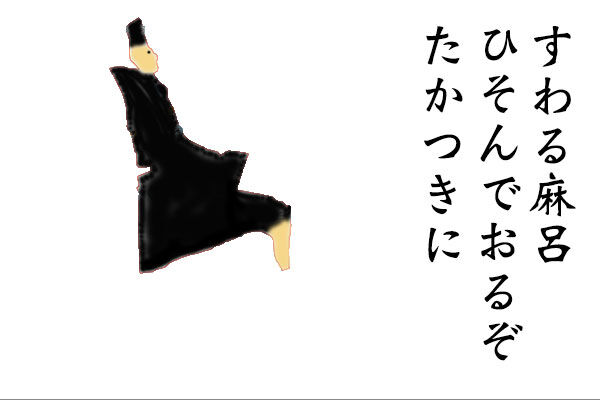 すわる麻呂
ひそんでおるぞ
たかつきに